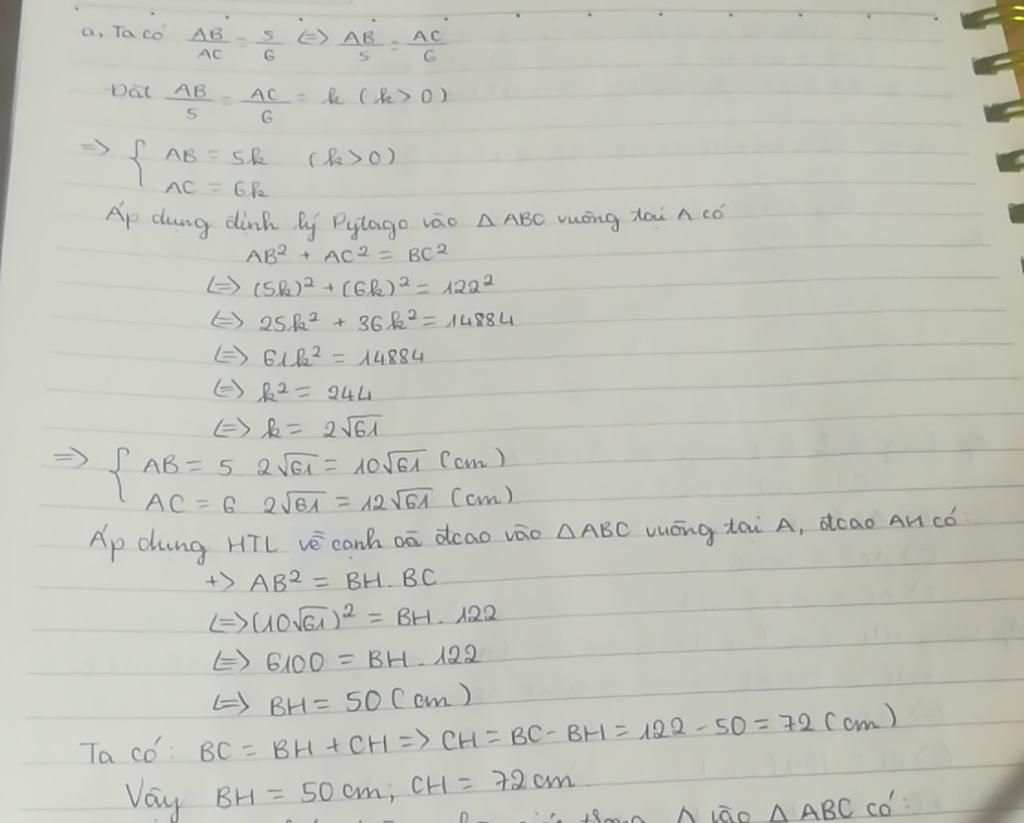 a, Ta có AB/AC = 5/6 <=> AB/5 = AC/6
Đặt AB/5 = AC/6 = k (k > 0)
=> { AB = 5k (k > 0)
AC = 6k
Áp dụng định lý Pytago vào Δ ABC vuông tại A có
AB² + AC² = BC²
<=> (5k)² + (6k)² = 122²
<=> 25k² + 36k² = 14884
<=> 61k² = 14884
<=> k² = 244
<=> k = 2√61
=> { AB = 5 2√61 = 10√61 (cm)
AC = 6 2√61 = 12√61 (cm)
Áp dụng HTL về cạnh và đcao vào Δ ABC vuông tại A, đcao AH có:
+> AB² = BH. BC
<=> (10√61)² = BH. 122
<=> 6100 = BH. 122
<=> BH = 50 (cm)
Ta có: BC = BH + CH => CH = BC - BH = 122 - 50 = 72 (cm)
Vậy BH = 50 cm; CH = 72 cm
Δ vào Δ ABC có: